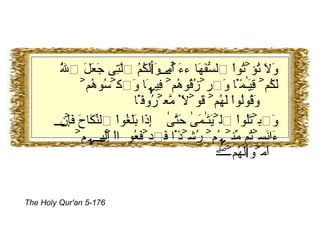 وَلَا تُؤۡتُواْ ٱلسُّفَهَآءَ أَمۡوَٰلَكُمُ ٱلَّتِى جَعَلَ ٱللَّهُ
لَكُمۡ قِيَـٰمً۬ا وَٱرۡزُقُوهُمۡ فِيہَا وَٱكۡسُوهُمۡ
وَقُولُواْ لَهُمۡ قَوۡلاً۬ مَّعۡرُوفً۬ا
وَٱبۡتَلُواْ ٱلۡيَتَـٰمَىٰ حَتَّىٰٓ إِذَا بَلَغُواْ ٱلنِّكَاحَ فَإِنۡ
ءَانَسۡتُم مِّنۡہُمۡ رُشۡدً۬ا فَٱدۡفَعُوٓاْ إِلَيۡہِمۡ
أَمۡوَٰلَهُمۡ‌ۖ
The Holy Qur'an 5-176